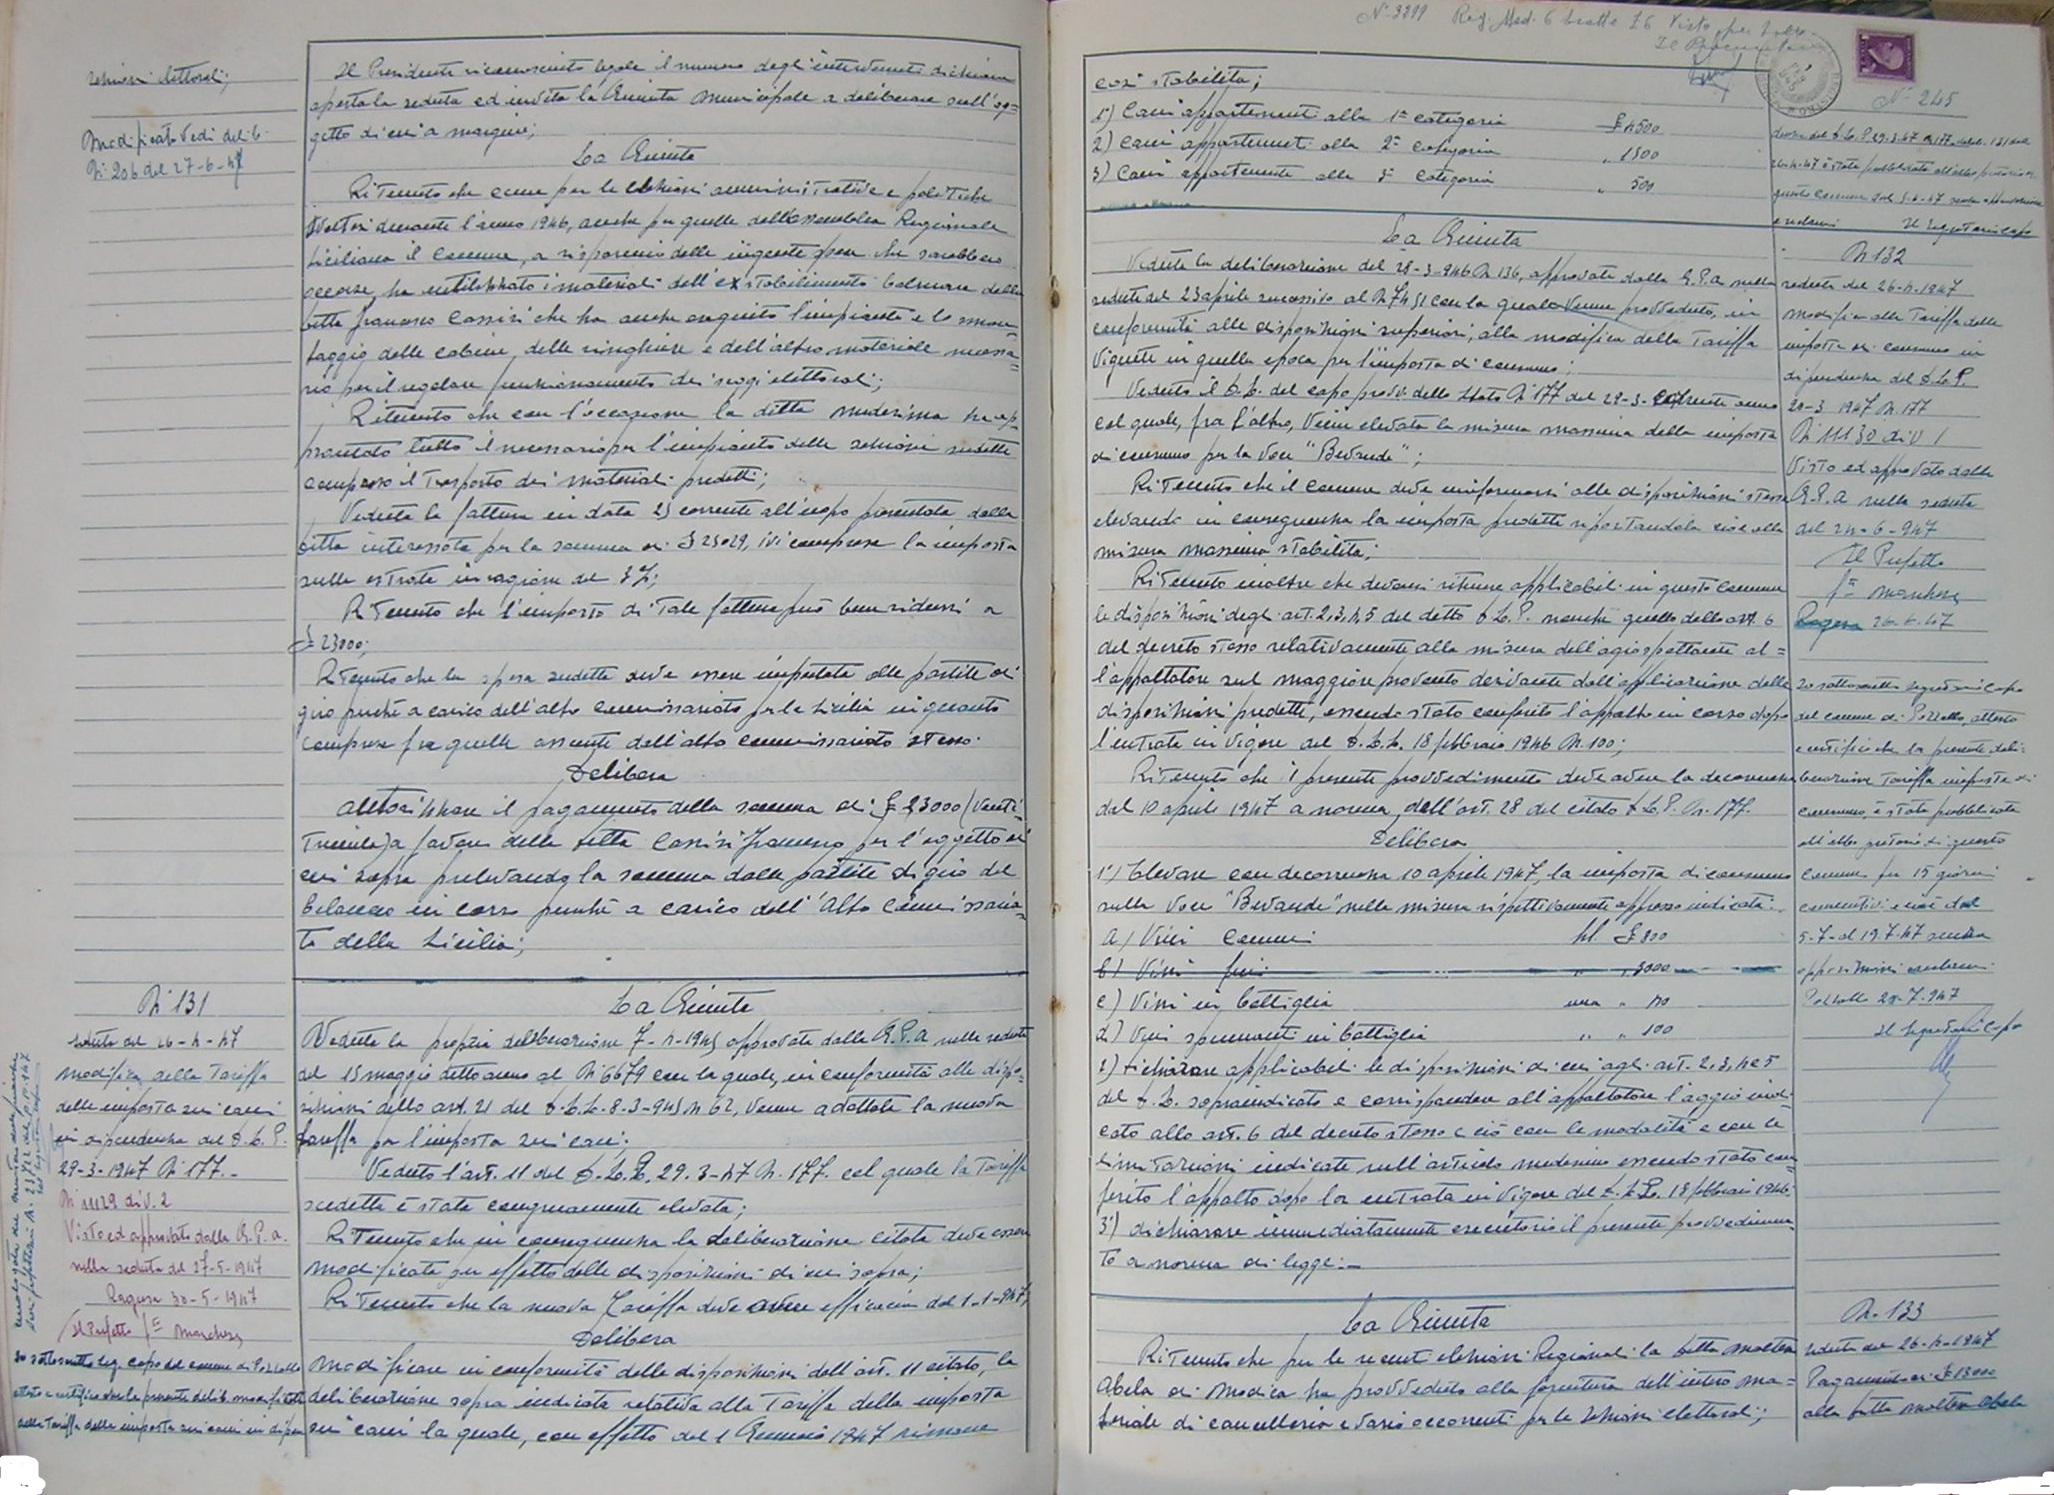 sezioni elettorali;
Modificato Vedi delib.
N. 206 del 27-6-47
Il Presidente riconosciuto legale il numero degl'intervenuti dichiara
aperta la seduta ed invita la Giunta Municipale a deliberare sull'og=
getto di cui a margine;
La Giunta
Ritenuto che come per le elezioni amministrative e politiche
svoltesi durante l'anno 1946, anche per quelle dell'Assemblea Regionale
Siciliana il Comune, a risparmio delle ingenti spese che sarebbero
occorse, ha utilizzato i materiali dell'ex stabilimento balneare della
ditta Francesco Cassisi che ha anche eseguito l'impianto e lo smon=
taggio delle cabine, delle ringhiere e dell'altro materiale necessa=
rio per il regolare funzionamento dei seggi elettorali;
Ritenuto che con l'occasione la ditta medesima ha ap=
prontato tutto il necessario per l'impianto delle sezioni suddette
compreso il trasporto dei materiali predetti;
Veduta la fattura in data 25 corrente all'uopo presentata dalla
ditta interessata per la somma di £ 25029, ivi compresa la imposta
sulle entrate in ragione del 3%;
Ritenuto che l'importo di tale fattura può ben ridursi a
£ 23000;
Ritenuto che la spesa sudetta deve essere imputata alle partite di
giro perchè a carico dell'alto Commissariato per la Sicilia in quanto
compresa fra quelle assunte dall'alto commissariato stesso.
Delibera
Autorizzare il pagamento della somma di £ 23000 (Venti=
tremila) a favore della ditta Cassisi Francesco per l'oggetto di
cui sopra prelevando la somma dalle partite di giro del
bilancio in corso perchè a carico dell'Alto Commissaria=
to della Sicilia;
N. 131
seduta del 26-4-47
modifica della Tariffa
delle imposta sui cani
in dipendenza del D.L.P.
29-3-1947 N 177.-
N. 11129 div. 2
Visto ed approvato dalla G.P.A.
nella seduta del 27-5-1947
Ragusa 30-5-1947
Il Prefetto fto Marchese
Io sottoscritto Seg. capo del comune di Pozzallo
attesto e certifico che la presente delib. modifica
della Tariffa delle imposta sui cani in dipen
La Giunta
Veduta la propria deliberazione 7-4-1945 approvata dalla G.P.A. nella seduta
del 15 maggio detto anno al N. 6679 con la quale, in conformità alle dispo=
sizioni dello art. 21 del D.L.L. 8-3-945 N 62, venne adottata la nuova
tariffa per l'imposta sui cani;
Veduto l'art. 11 del D.L.P. 29.3-47 N. 177. col quale la Tariffa
sudetta è stata congruamente elevata;
Ritenuto che in conseguenza la deliberazione citata deve essere
modificata per effetto delle disposizioni di cui sopra;
Ritenuto che la nuova Tariffa deve avere efficacia dal 1-1-947;
Delibera
Modificare in conformità delle disposizioni dell'art. 11 citato, la
deliberazione sopra indicata relativa alla Tariffa della imposta
sui cani la quale, con effetto dal 1 Gennaio 1947 rimane
N. 3299 Reg. Mod. 6 Visto per
Il Procuratore
N. 245
così stabilita;
1) Cani appartenenti alla 1ª categoria £ 4500
2) Cani appartenenti alla 2ª categoria " 1500
3) Cani appartenente alla 3ª categoria " 500
La Giunta
Veduta la deliberazione del 28-3-946 N. 136, approvata dalla G.P.A. nella
seduta del 23 aprile successivo al N. 7451 con la quale venne provveduto, in
conformità alle disposizioni superiori, alla modifica della Tariffa
vigente in quella epoca per l'imposta di consumo;
Veduto il D.L. del capo provv. dello Stato N. 177 del 29-3-corrente anno
col quale, fra l'altro, viene elevata la misura massima della imposta
di consumo per la voce "Bevande";
Ritenuto che il Comune deve uniformarsi alle disposizioni stesse
elevando in conseguenza la imposta predetta riportandola cioè alla
misura massima stabilita;
Ritenuto inoltre che devonsi ritenere applicabili in questo Comune
le disposizioni degli art. 2,3,4,5 del detto D.L.P. nonchè quello dello art. 6
del decreto stesso relativamente alla misura dell'agio spettante al=
l'appaltatore sul maggiore provento derivante dall'applicazione delle
disposizioni predette, essendo stato conferito l'appalto in corso dopo
l'entrata in vigore del D.L.L. 18 febbraio 1946 N. 100;
Ritenuto che il presente provvedimento deve avere la decorrenza
dal 10 aprile 1947 a norma dell'art. 28 del citato D.L.P. N. 177.
Delibera
1°) Elevare con decorrenza 10 aprile 1947, la imposta di consumo
sulla voce "Bevande" nella misura rispettivamente appresso indicata:
a) Vini comuni hl. £ 800
b) Vini fini " " 3000
c) Vini in bottiglia una " 40
d) Vini spumanti in bottiglia " " 100
2) dichiarare applicabili le disposizioni di cui agli art. 2,3,4 e 5
del D.L. sopraindicato e corrispondere all'appaltatore l'aggio indi=
cato allo art. 6 del decreto stesso e ciò con le modalità e con le
limitazioni indicate nell'articolo medesimo essendo stato con=
ferito l'appalto dopo la entrata in vigore del D.L.L. 18 febbraio 1946.
3°) dichiarare immediatamente esecutorio il presente provvedimen=
to a norma di legge.-
La Giunta
Ritenuto che per le recenti elezioni Regionali la Ditta Moltisa
Abela di Modica ha provveduto alla fornitura dell'intero ma=
teriale di cancelleria e vario occorrenti per le sezioni elettorali;
denza del D.L.P. 29.3.47 N 177 delib. 131 del
26.4.47 è stata pubblicata all'albo pretorio di
questo Comune dal senza opposizioni
e reclami Il Segretario Capo
N 132
seduta del 26-4-1947
modifica alla Tariffa delle
imposte di consumo in
dipendenza del D.L.P.
29-3 1947 N. 177
N. 11130 div 1
Visto ed approvato dalla
G.P.A. nella seduta
del 24-6-947
Il Prefetto
fto Marchese
Ragusa 26.6.47
Io sottoscritto Segretario Capo
del comune di Pozzallo, attesto
e certifico che la presente deli=
berazione Tariffa imposte di
consumo è stata pubblicata
all'albo pretorio di questo
Comune per 15 giorni
consecutivi e cioè dal
5-7- al 19.7.47 senza
opposizioni e reclami.
Pozzallo 20-7-947
Il Segretario Capo
N. 133
seduta del 26-4-1947
Pagamento di £ 13000
alla ditta Moltisa Abela